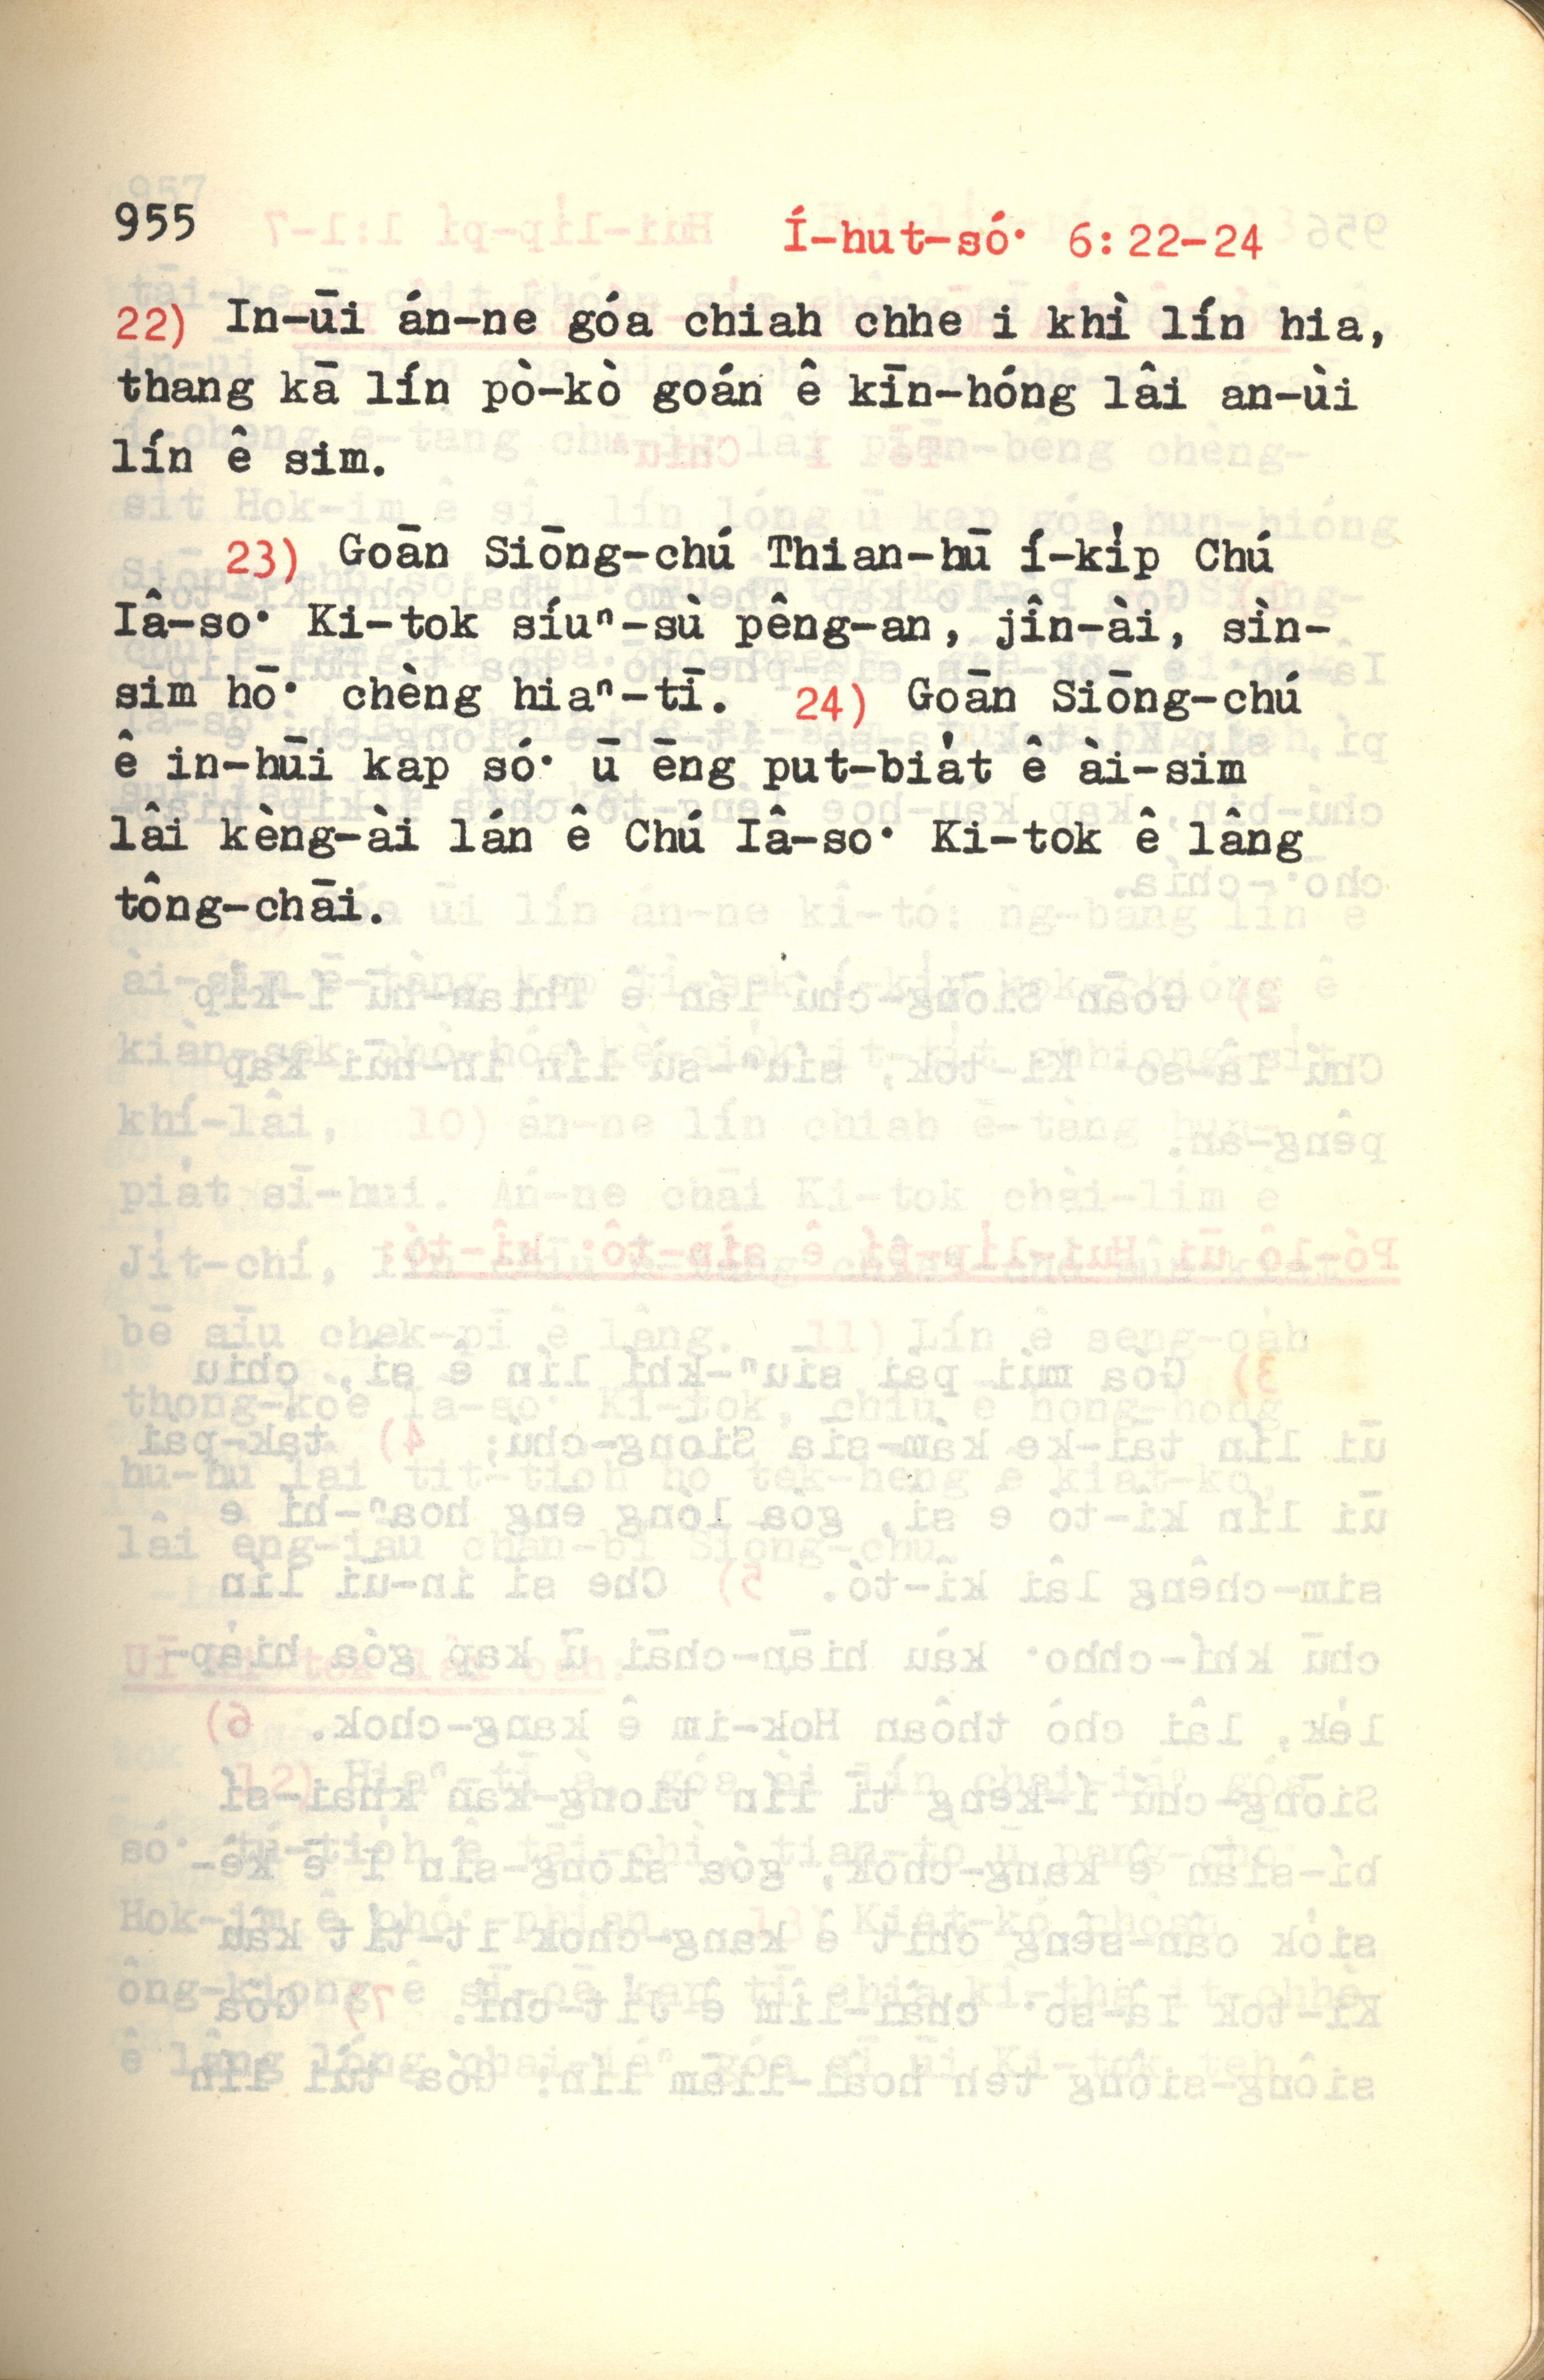 955 Í-hut-só͘ 6:22-24
22) In-ūi án-ne góa chiah chhe i khì lín hia,
thang kā lín pò-kò goán ê kīn-hóng lâi an-ùi
lín ê sim.
23) Goān Siōng-chú Thian-hū í-ki̍p Chú
Iâ-so͘ Ki-tok síuⁿ-sù pêng-an, jîn-ài, sìn-
sim hō͘ chèng hiaⁿ-tī. 24) Goān Siōng-chú
ê in-hūi kap só͘ ū ēng put-bia̍t ê ài-sim
lâi kèng-ài lán ê Chú Iâ-so͘ Ki-tok ê lâng
tông-chāi.